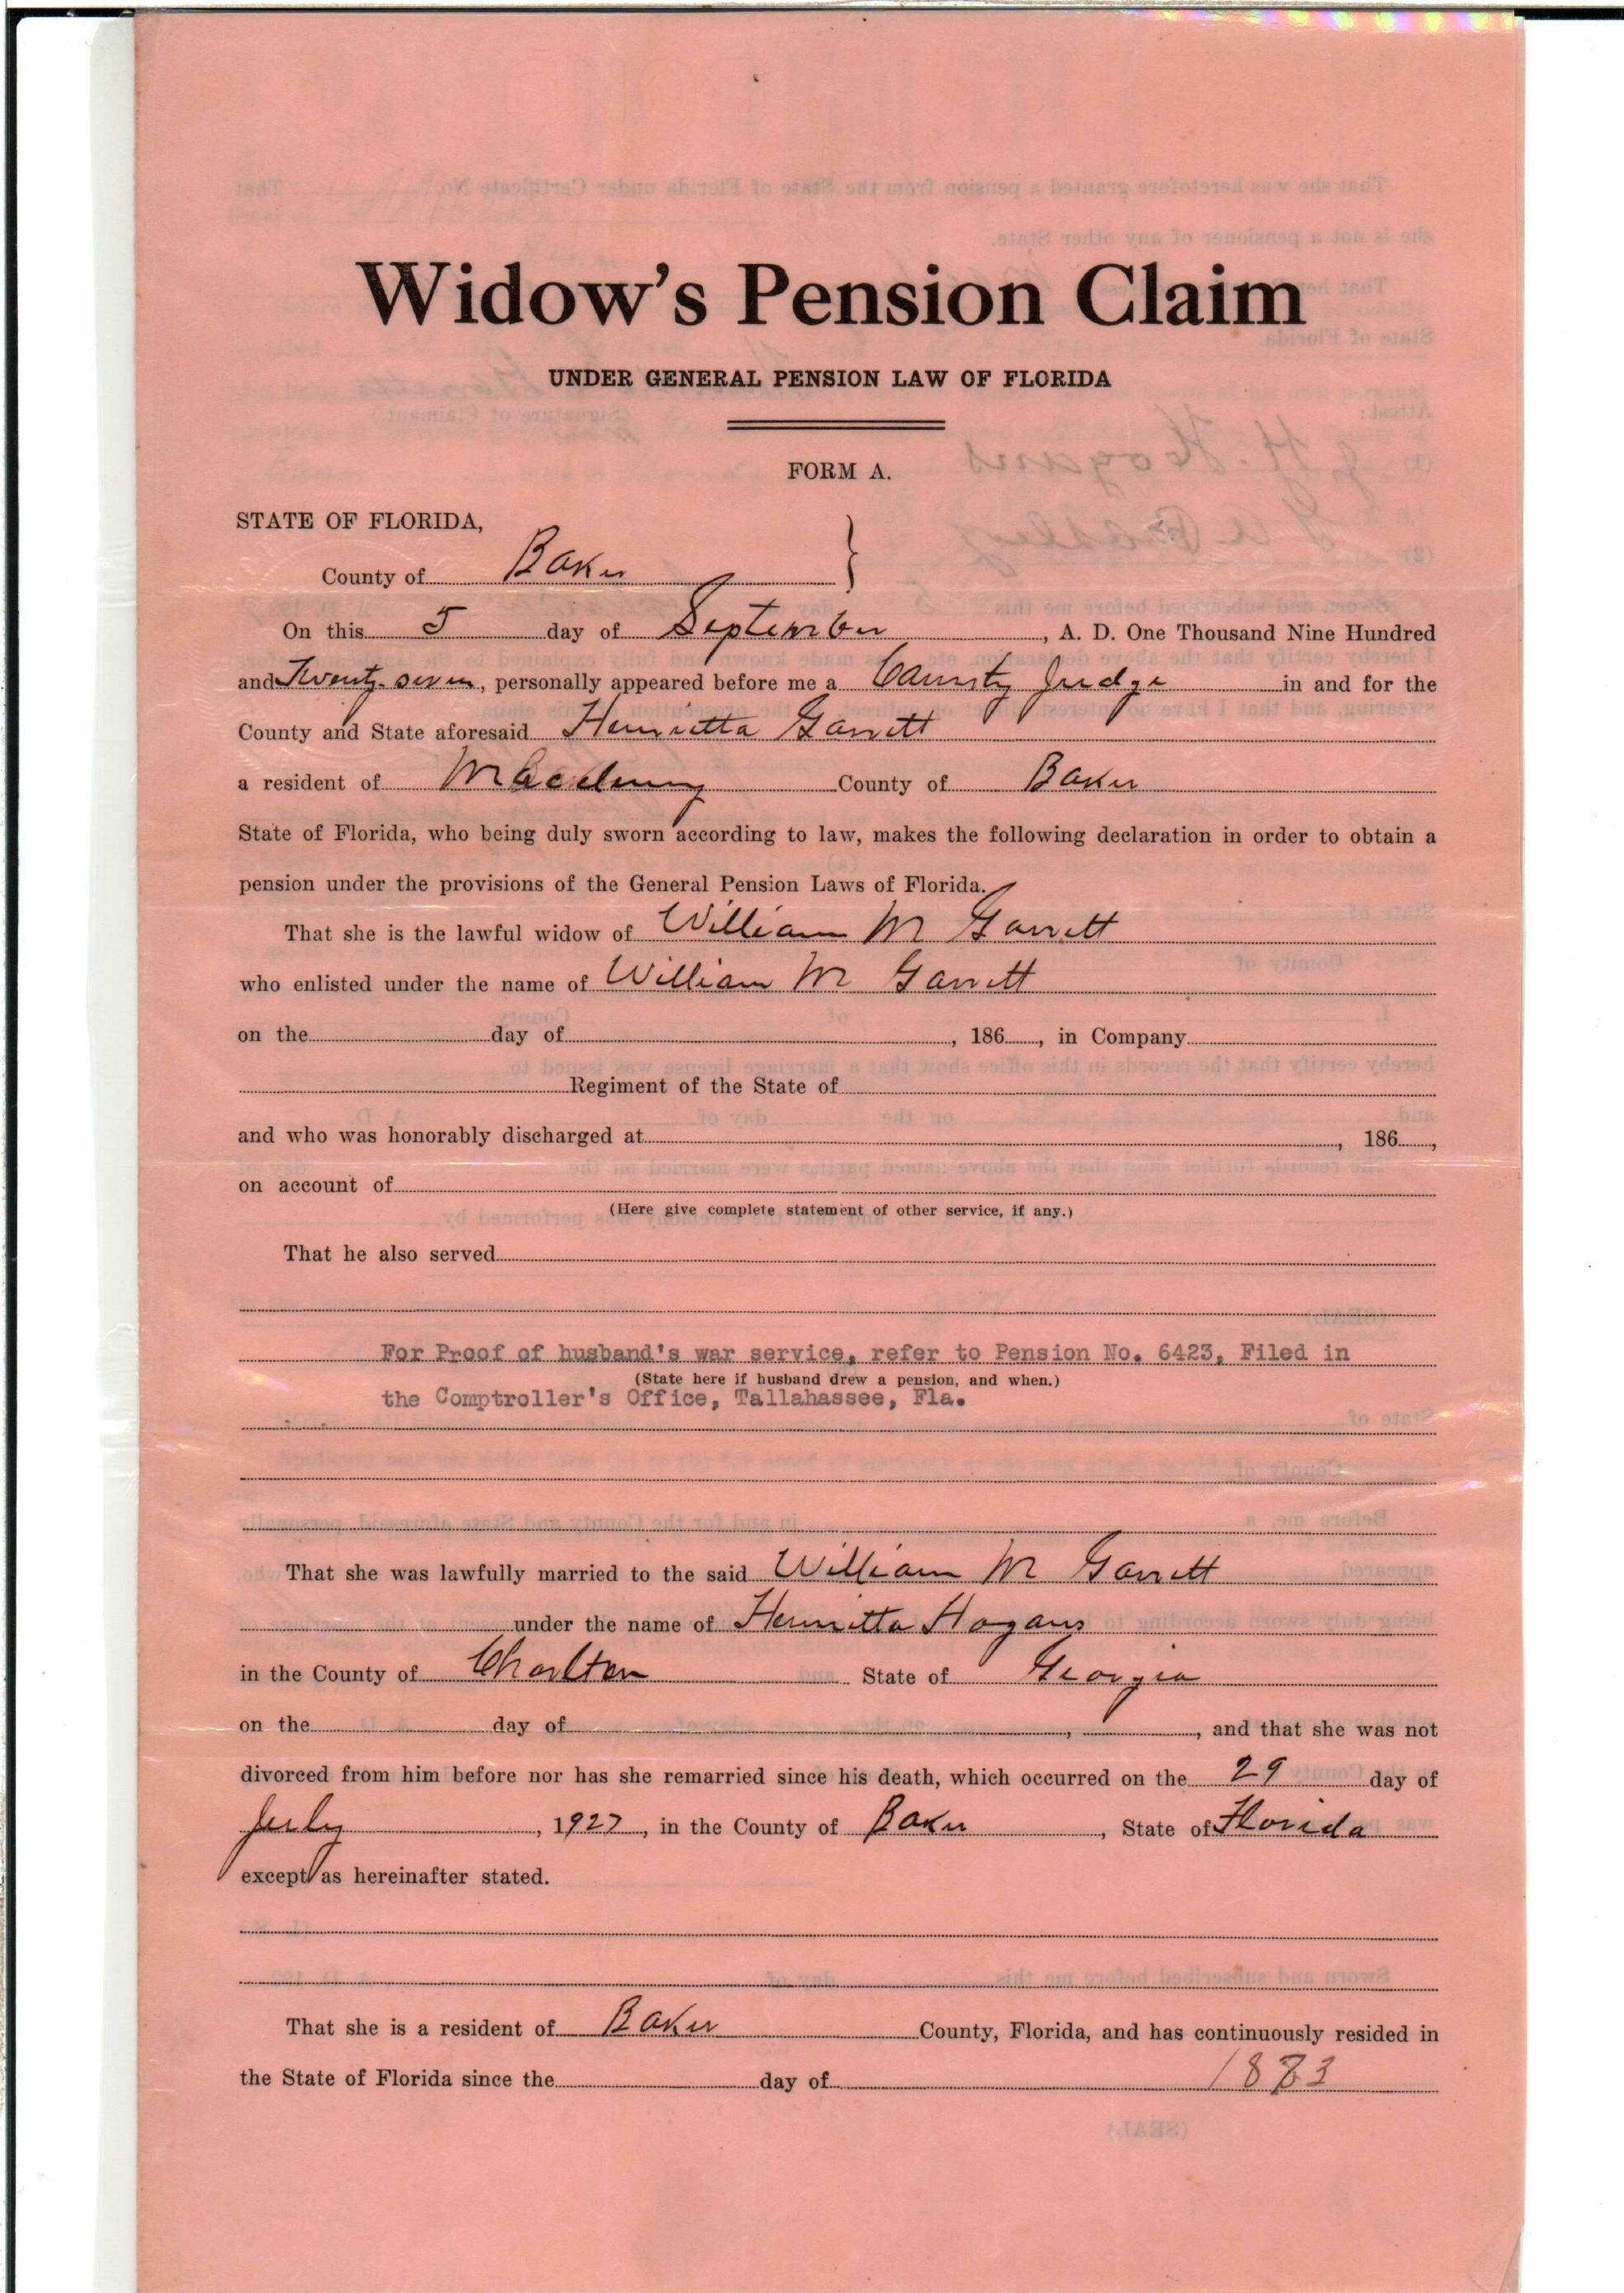 Widow's Pension Claim
UNDER GENERAL PENSION LAW OF FLORIDA
FORM A.
STATE OF FLORIDA,
County of Baker
On this 5 day of September, A. D. One Thousand Nine Hundred
and Twenty-seven, personally appeared before me a County Judge in and for the
County and State aforesaid Henrietta Garrett
a resident of Macclenny County of Baker
State of Florida, who being duly sworn according to law, makes the following declaration in order to obtain a
pension under the provisions of the General Pension Laws of Florida.
That she is the lawful widow of William M Garrett
who enlisted under the name of William M Garrett
on the day of , 186 , in Company
Regiment of the State of
and who was honorably discharged at , 186 ,
on account of
(Here give complete statement of other service, if any.)
That he also served
For Proof of husband's war service, refer to Pension No. 6423, Filed in
(State here if husband drew a pension, and when.)
the Comptroller's Office, Tallahassee, Fla.
That she was lawfully married to the said William M Garrett
under the name of Henrietta Hogans
in the County of Charlton State of Georgia
on the day of , , and that she was not
divorced from him before nor has she remarried since his death, which occurred on the 29 day of
July, 1927, in the County of Baker, State of Florida
except as hereinafter stated.
That she is a resident of Baker County, Florida, and has continuously resided in
the State of Florida since the day of 1883